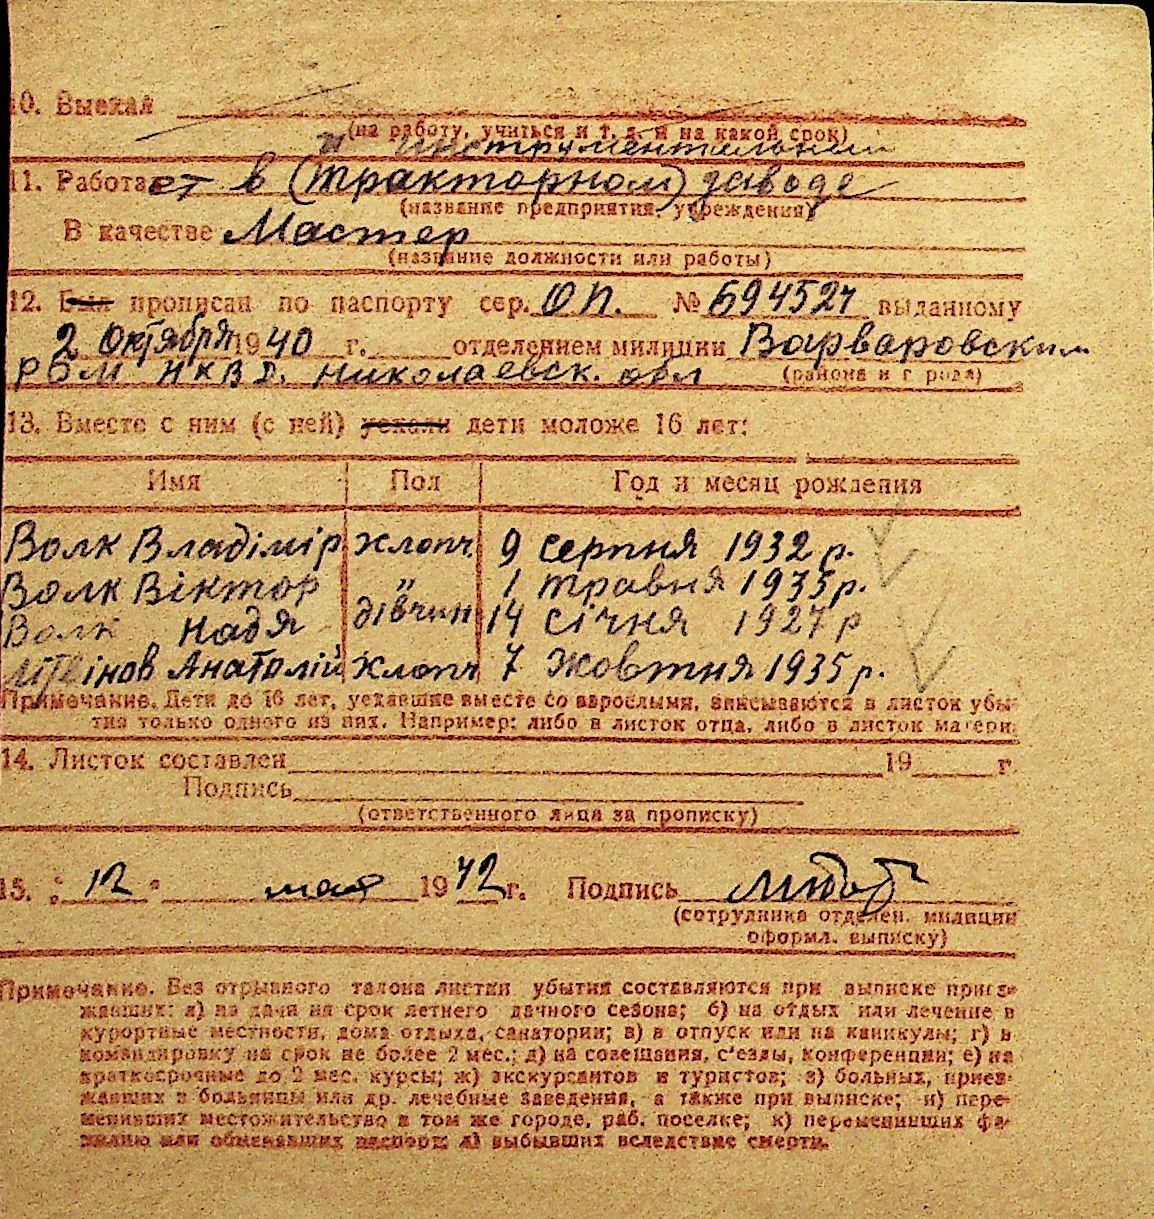 10. Выехал
(на работу, учиться и т. д. и на какой срок)
и инструментальний
11. Работает в (тракторном) заводе
(название предприятия, учреждения)
В качестве Мастер
(название должности или работы)
12. Был прописан по паспорту сер. ОП. № 694527 выданному
2 Октября 1940 г. отделением милиции Варваровским
РОМ НКВД. Николаевск. обл (района и города)
13. Вместе с ним (с ней) уехали дети моложе 16 лет:
Имя Пол Год и месяц рождения
Волк Владімір хлопч 9 серпня 1932 р.
Волк Віктор " 1 травня 1935 р.
Волк Надя дівчин 14 січня 1927 р
Літвінов Анатолій хлопч 7 жовтня 1935 р.
Примечание. Дети до 16 лет, уехавшие вместе со взрослыми, вписываются в листок убы-
тия только одного из них. Например: либо в листок отца, либо в листок матери.
14. Листок составлен 19 г.
Подпись
(ответственного лица за прописку)
15. "12" мая 1942 г. Подпись
(сотрудника отделен. милиции
оформл. выписку)
Примечание. Без отрывного талона листки убытия составляются при выписке приез-
жавших: а) на дачи на срок летнего дачного сезона; б) на отдых или лечение в
курортные местности, дома отдыха, санатории; в) в отпуск или на каникулы; г) в
командировку на срок не более 2 мес.; д) на совещания, с'езды, конференции; е) на
краткосрочные до 2 мес. курсы; ж) экскурсантов и туристов; з) больных, приез-
жавших в больницы или др. лечебные заведения, а также при выписке; и) пере-
менивших местожительство в том же городе, раб. поселке; к) переменивших фа-
милию или обменявших паспорт; л) выбывших вследствие смерти.